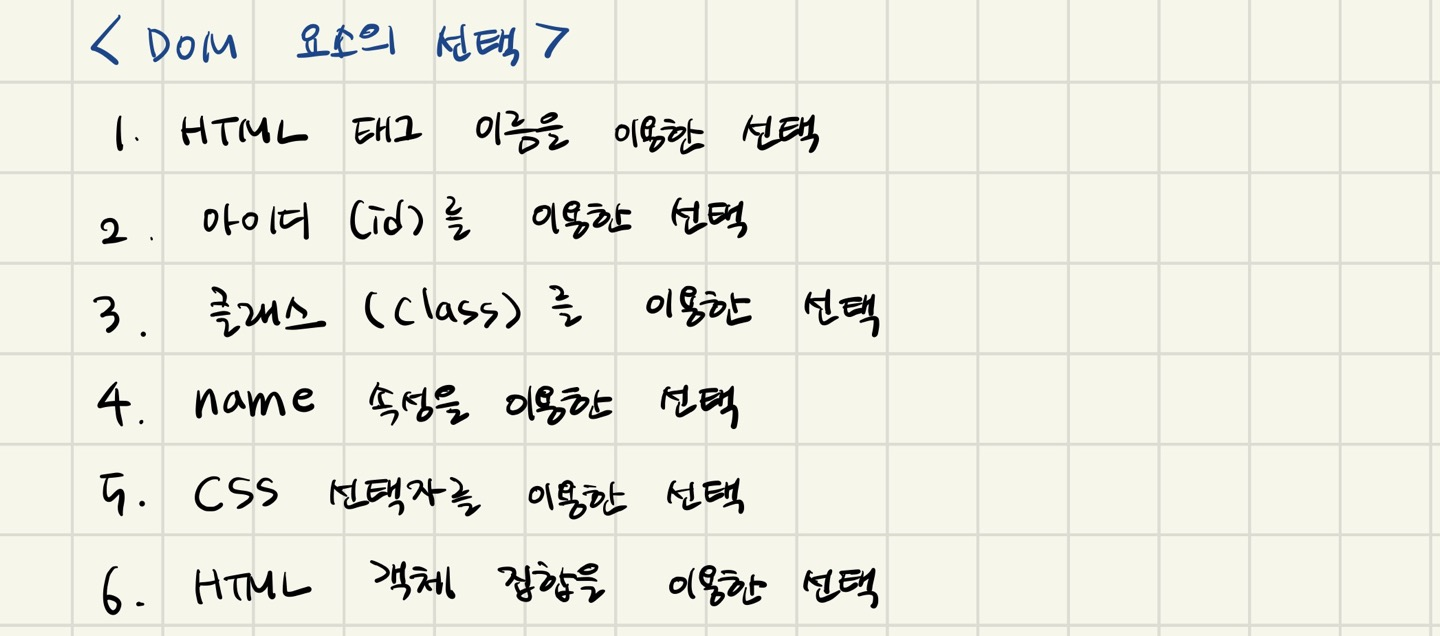 < DOM 요소의 선택 >
1. HTML 태그 이름을 이용한 선택
2. 아이디 (id)를 이용한 선택
3. 클래스 (class)를 이용한 선택
4. name 속성을 이용한 선택
5. CSS 선택자를 이용한 선택
6. HTML 객체 집합을 이용한 선택